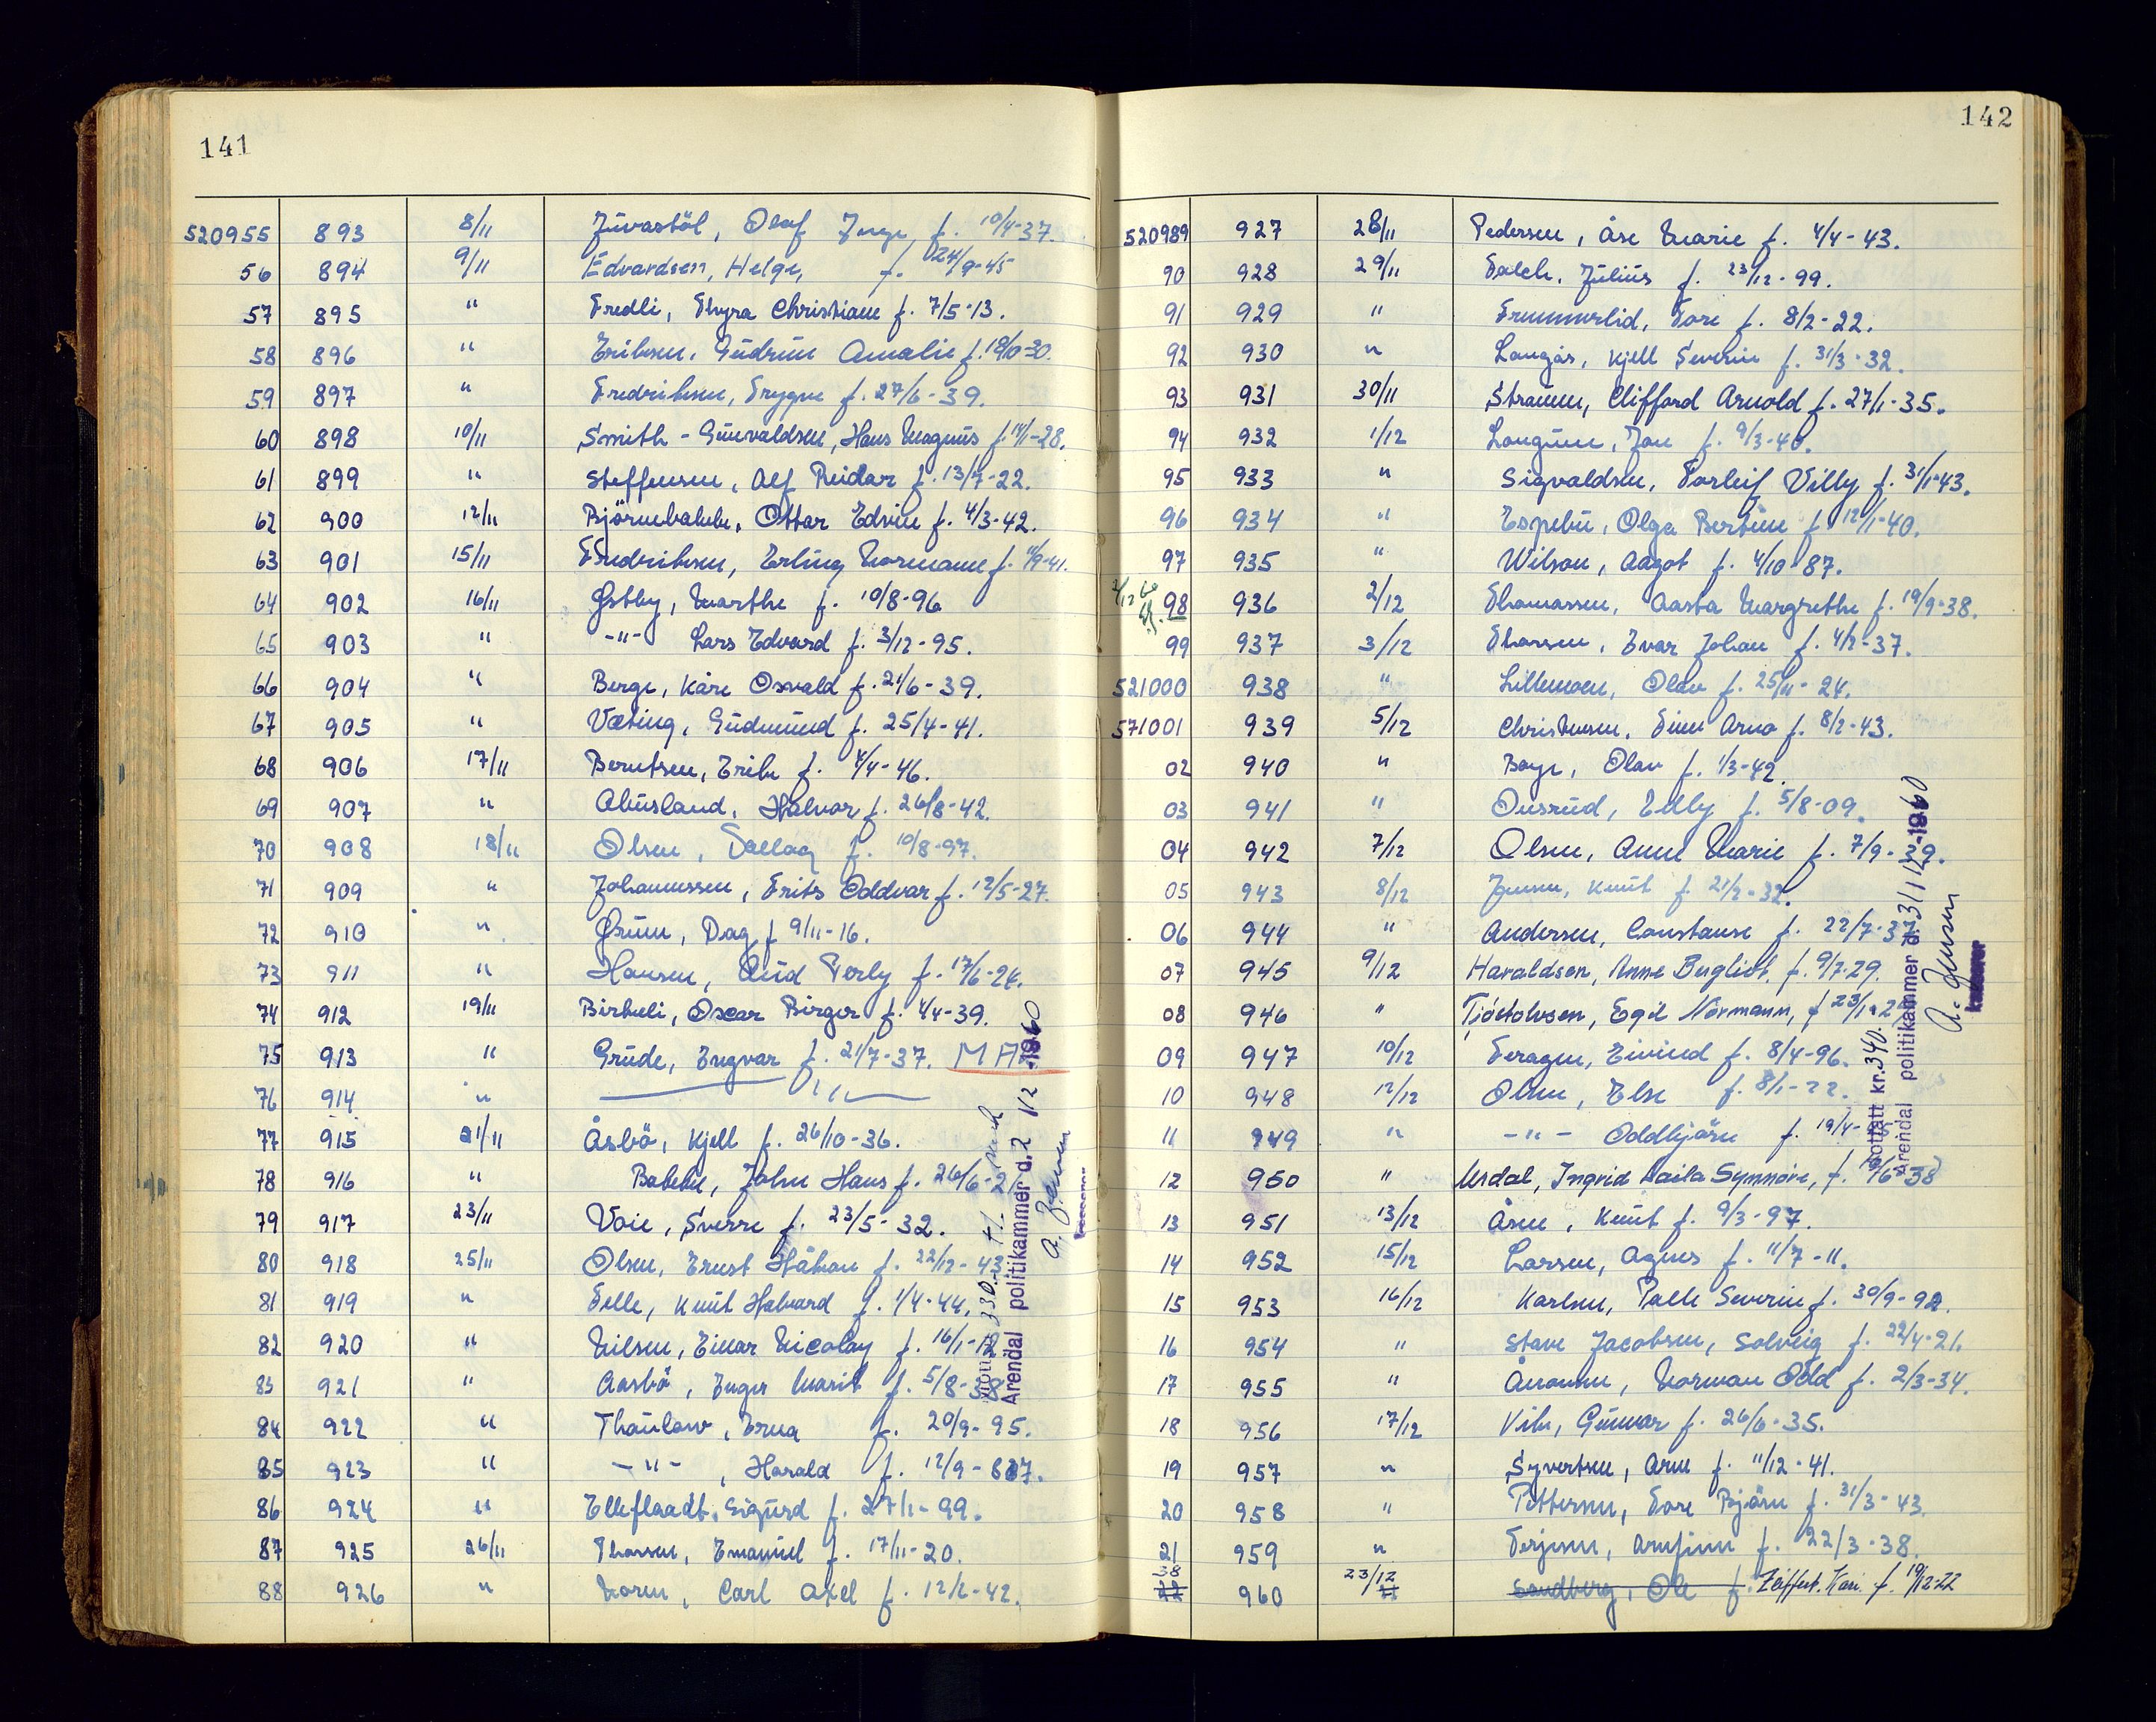 141
520955 893 8/11 Olaf f. 10/4-37.
56 894 9/11 Edvardsen, Helge, f. 24/9-45
57 895 " Fredli, Thyra Christiane f. 7/5-13.
58 896 " Eriksen, Gudrun Amalie f.
59 897 " Fredriksen, Trygve f. 27/6-39.
60 898 10/11 Smith-Gunvaldsen, Hans Magnus f.
61 899 " Steffensen, Alf Reidar f. 13/7-22.
62 900 12/11 Ottar Edvin f. 4/3-42.
63 901 15/11 Fredriksen, Erling Normann f.
64 902 16/11 Østby, Marthe f. 10/8-96
65 903 " -"- Lars Edvard f. 3/12-95.
66 904 " Berge, Kåre Osvald f. 21/6-39.
67 905 " Væting, Gudmund f. 25/4-41.
68 906 17/11 Berntsen, Erik f. 4/4-46.
69 907 " Abusland, Halvor f. 26/8-42.
70 908 18/11 Olsen, f. 10/8-97.
71 909 " Johannessen, Frits Oddvar f. 12/5-27.
72 910 " Dag f 9/11-16.
73 911 " Hansen, f. 17/6-24.
74 912 19/11 Birkeli, Oscar Birger f. 4/4-39.
75 913 " Grude, Yngvar f. 21/7-37. M A
76 914 " "
77 915 21/11 Åsbö, Kjell f. 26/10-36.
78 916 " Bakke, John Hans f. 26/6-2
79 917 23/11 Voie, Sverre f. 23/5-32.
80 918 25/11 Olsen, Ernst Håkon f. 22/12-43
81 919 " Felle, Knut Halvard f. 1/4-44.
82 920 " Nilsen, Einar Nicolay f. 16/1-12
83 921 " Aasbö, Inger Marit f. 5/8-38
84 922 " Thaulow, Erna f. 20/9-95.
85 923 " -"-, Harald f. 12/9-87.
86 924 " Sigurd f. 27/1-99.
87 925 26/11 Thorsen, Emanuel f. 17/11-20.
88 926 " Noren, Carl Axel f. 12/2-42.
330
Arendal politikammer d. 2 12 1960
A. Jensen
142
520989 927 28/11 Pedersen, Åse Marie f. 4/4-43.
90 928 29/11 Falch, Julius f. 23/12-99.
91 929 " Tore f. 8/2-22.
92 930 " Langås, Kjell Severin f. 31/3-32.
93 931 30/11 Clifford Arnold f. 27/1-35.
94 932 1/12 Jan f. 9/3-40.
95 933 " Sigvaldsen, Torleif Villy f. 31/1-43.
96 934 " Espebu, Olga Bertine f. 12/1-40.
97 935 " Wilson, Aagot f. 4/10-87.
98 936 2/12 Thomassen, Aasta Margrethe f. 19/9-38.
99 937 3/12 Thorsen, Ivar Johan f. 4/2-37.
521000 938 " Lillemoen, Olav f. 25/11-24.
571001 939 5/12 Christensen, Finn Arno f. 8/2-43.
02 940 " Boye, Olav f. 1/3-42.
03 941 " Onsrud, Edly f. 5/8-09.
04 942 7/12 Olsen, Anne Marie f. 7/9-29.
05 943 8/12 Jensen, Knut f 21/2-32.
06 944 " Andersen, Constanse f. 22/7-3
07 945 9/12 Haraldsen, Anne Bergliot, f. 9/7-29.
08 946 " Tjöstolvsen, Egil Normann, f
09 947 10/12 Feragen, Eivind f. 8/4-96.
10 948 12/12 Olsen, Else f. 8/1-22.
11 949 " -"- Oddbjörn f. 19/4-
12 950 " Ursdal, Ingrid Laila Synnöve, f.
13 951 13/12 Åsen, Knut f. 9/3-97.
14 952 15/12 Larsen, Agnes f. 11/7-11.
15 953 16/12 Karlsen, Palle Severin f. 30/9-92.
16 954 " Stave Jacobsen, Solveig f. 22/4-21.
17 955 " Ånonsen, Norman Odd f. 2/3-34.
18 956 17/12 Vik, Gunnar f. 26/6-35.
19 957 " Syvertsen, Arne f. 11/12-41.
20 958 " Pettersen, Tore Björn f. 31/3-43.
21 959 " Terjesen, Arnfinn f. 22/3-38.
38 960 23/12 Sandberg, Ole f. Kari f. 19/12-22
Mottatt kr. 340.
Arendal politikammer d. 31/12-1960
A. Jensen
kasserer